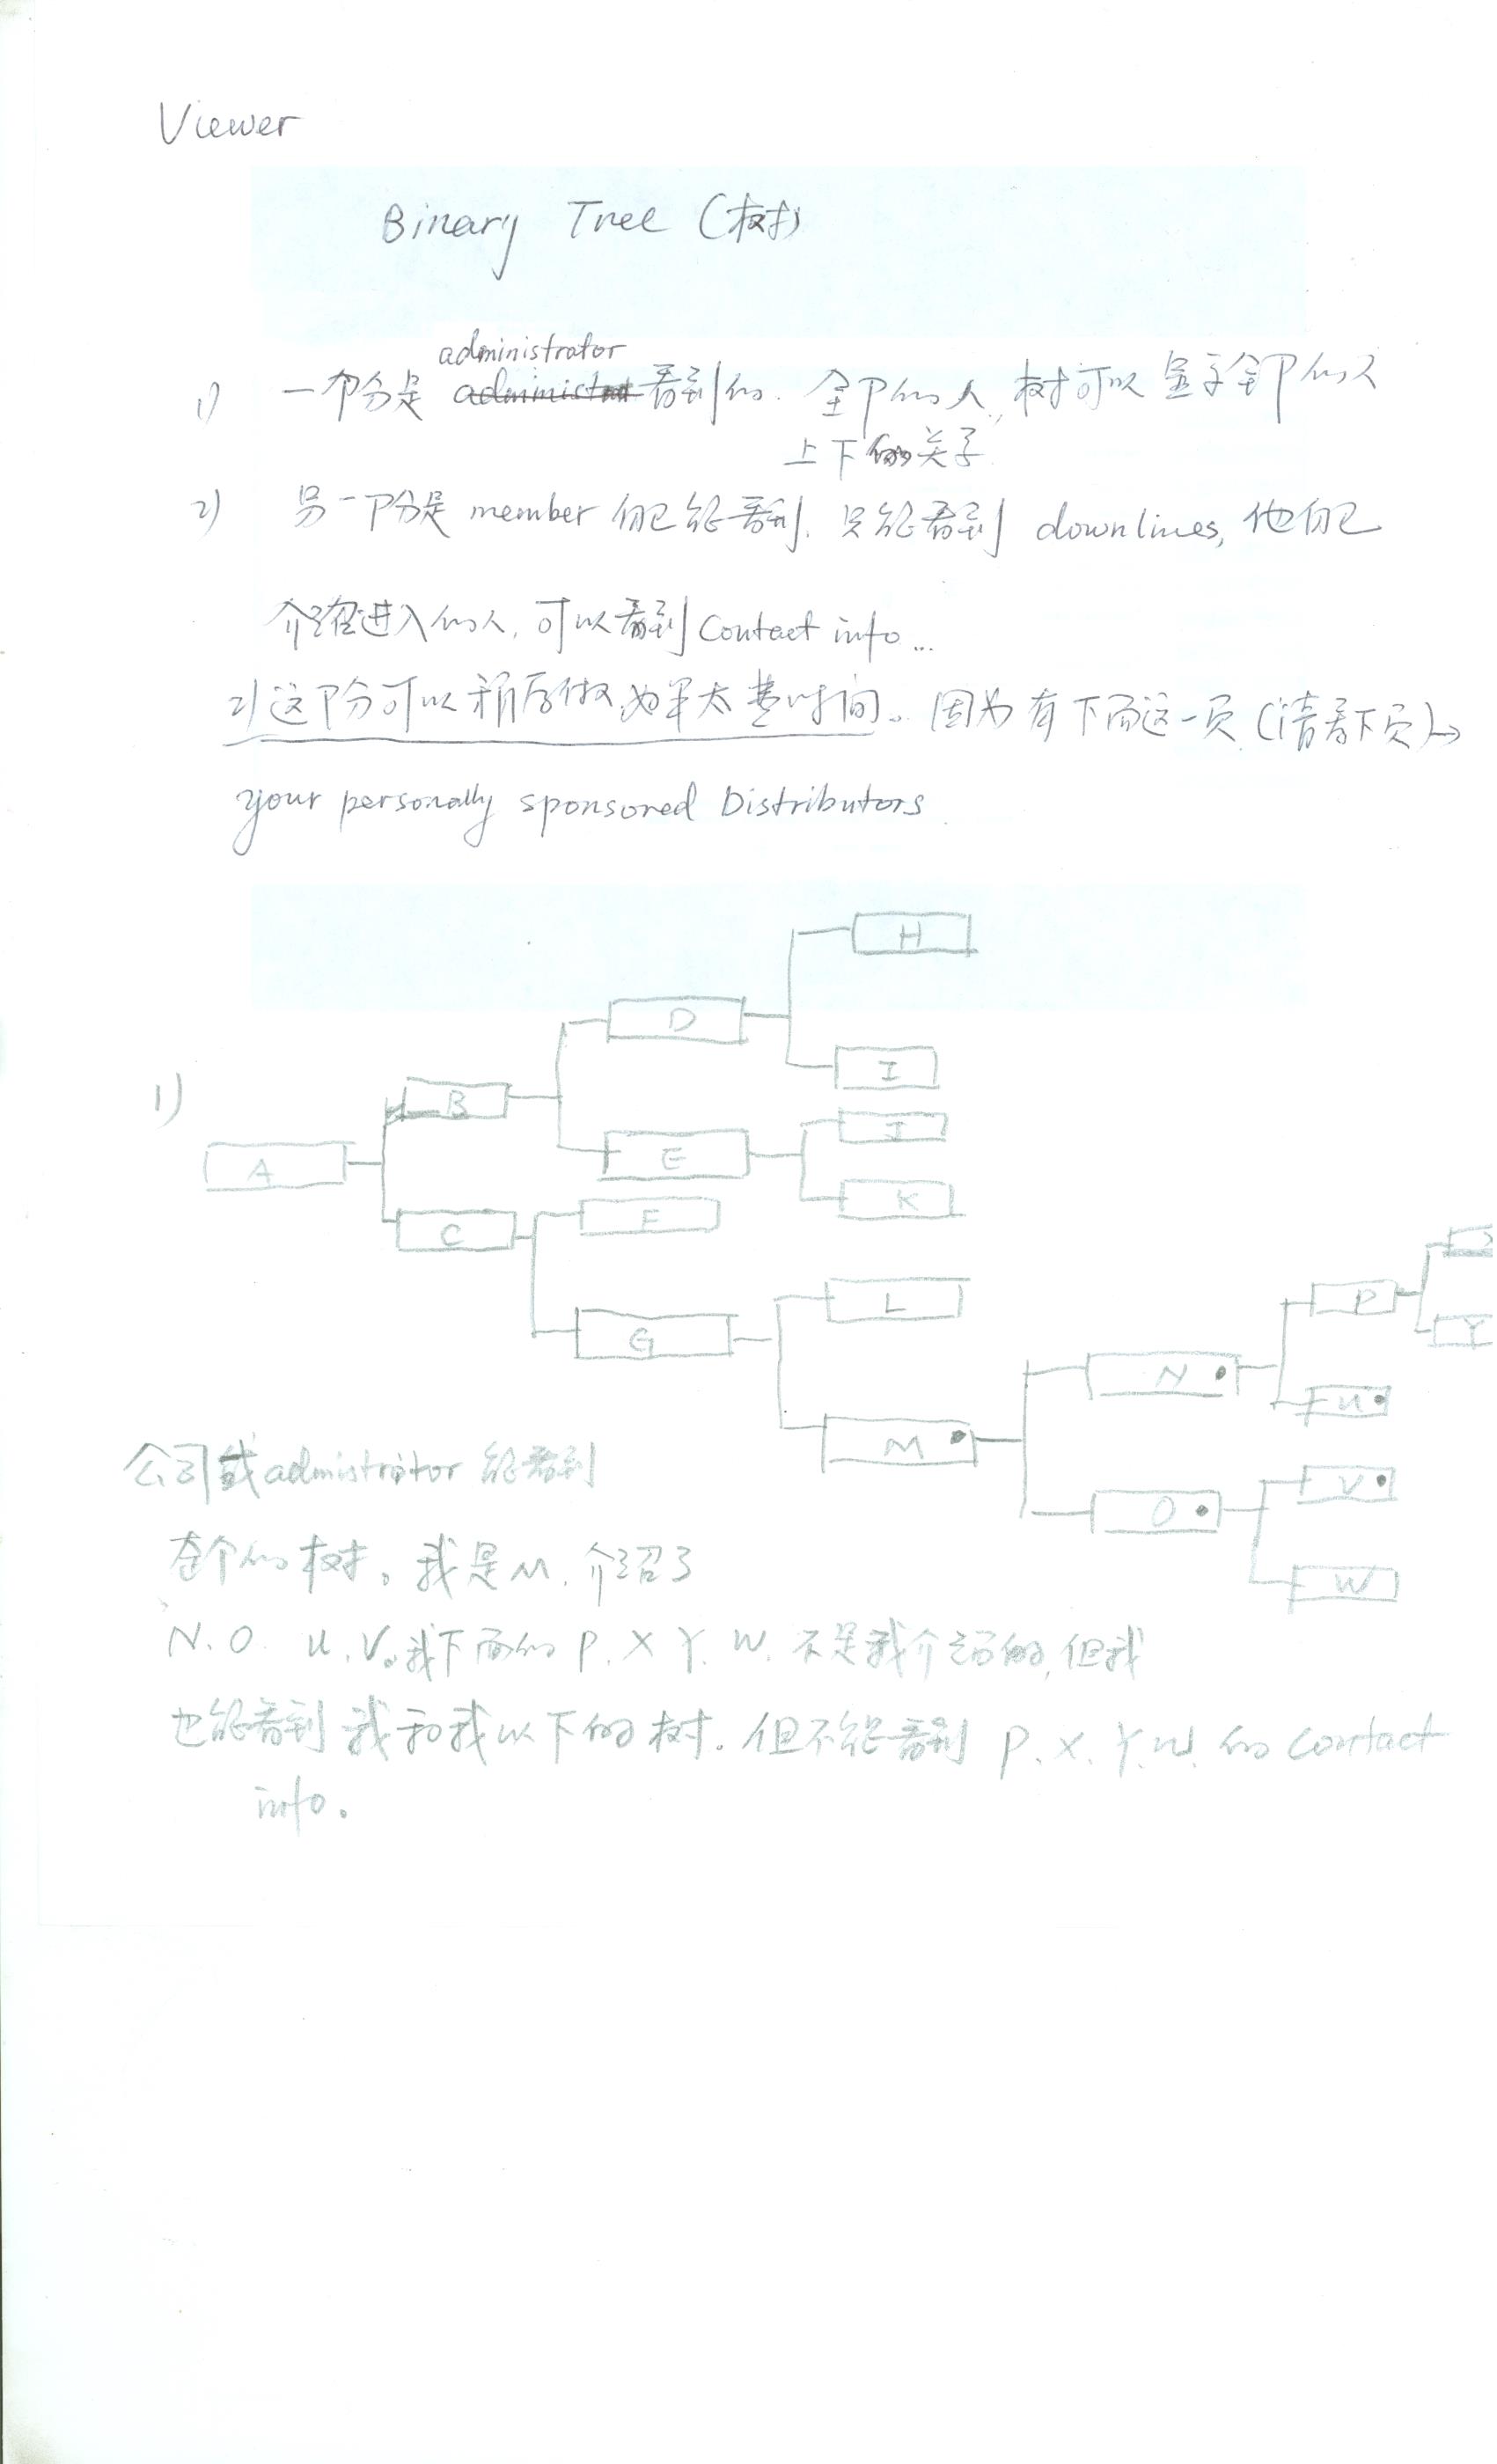 Viewer
Binary Tree (树)
administrator
1) 一部分是 administrat 看到的. 全部的人, 树可以显示全部的人
上下的关系
2) 另一部分是 member 们能看到. 只能看到 downlines, 他们
介绍进入的人, 可以看到 Contact info...
2) 这部分可以稍后做如果太费时间。因为有下面这一页 (请看下页)→
your personally sponsored Distributors
H
D
I
1)
B
J
A
E
K
C
F
L
P
G
Y
N
U
M
V
O
W
公司或 admistrator 能看到
整个的树。我是M. 介绍了
N. O. U. V。我下面的 P. X Y. W. 不是我介绍的, 但我
也能看到我和我以下的树. 但不能看到 P. X. Y. W. 的 contact
info。